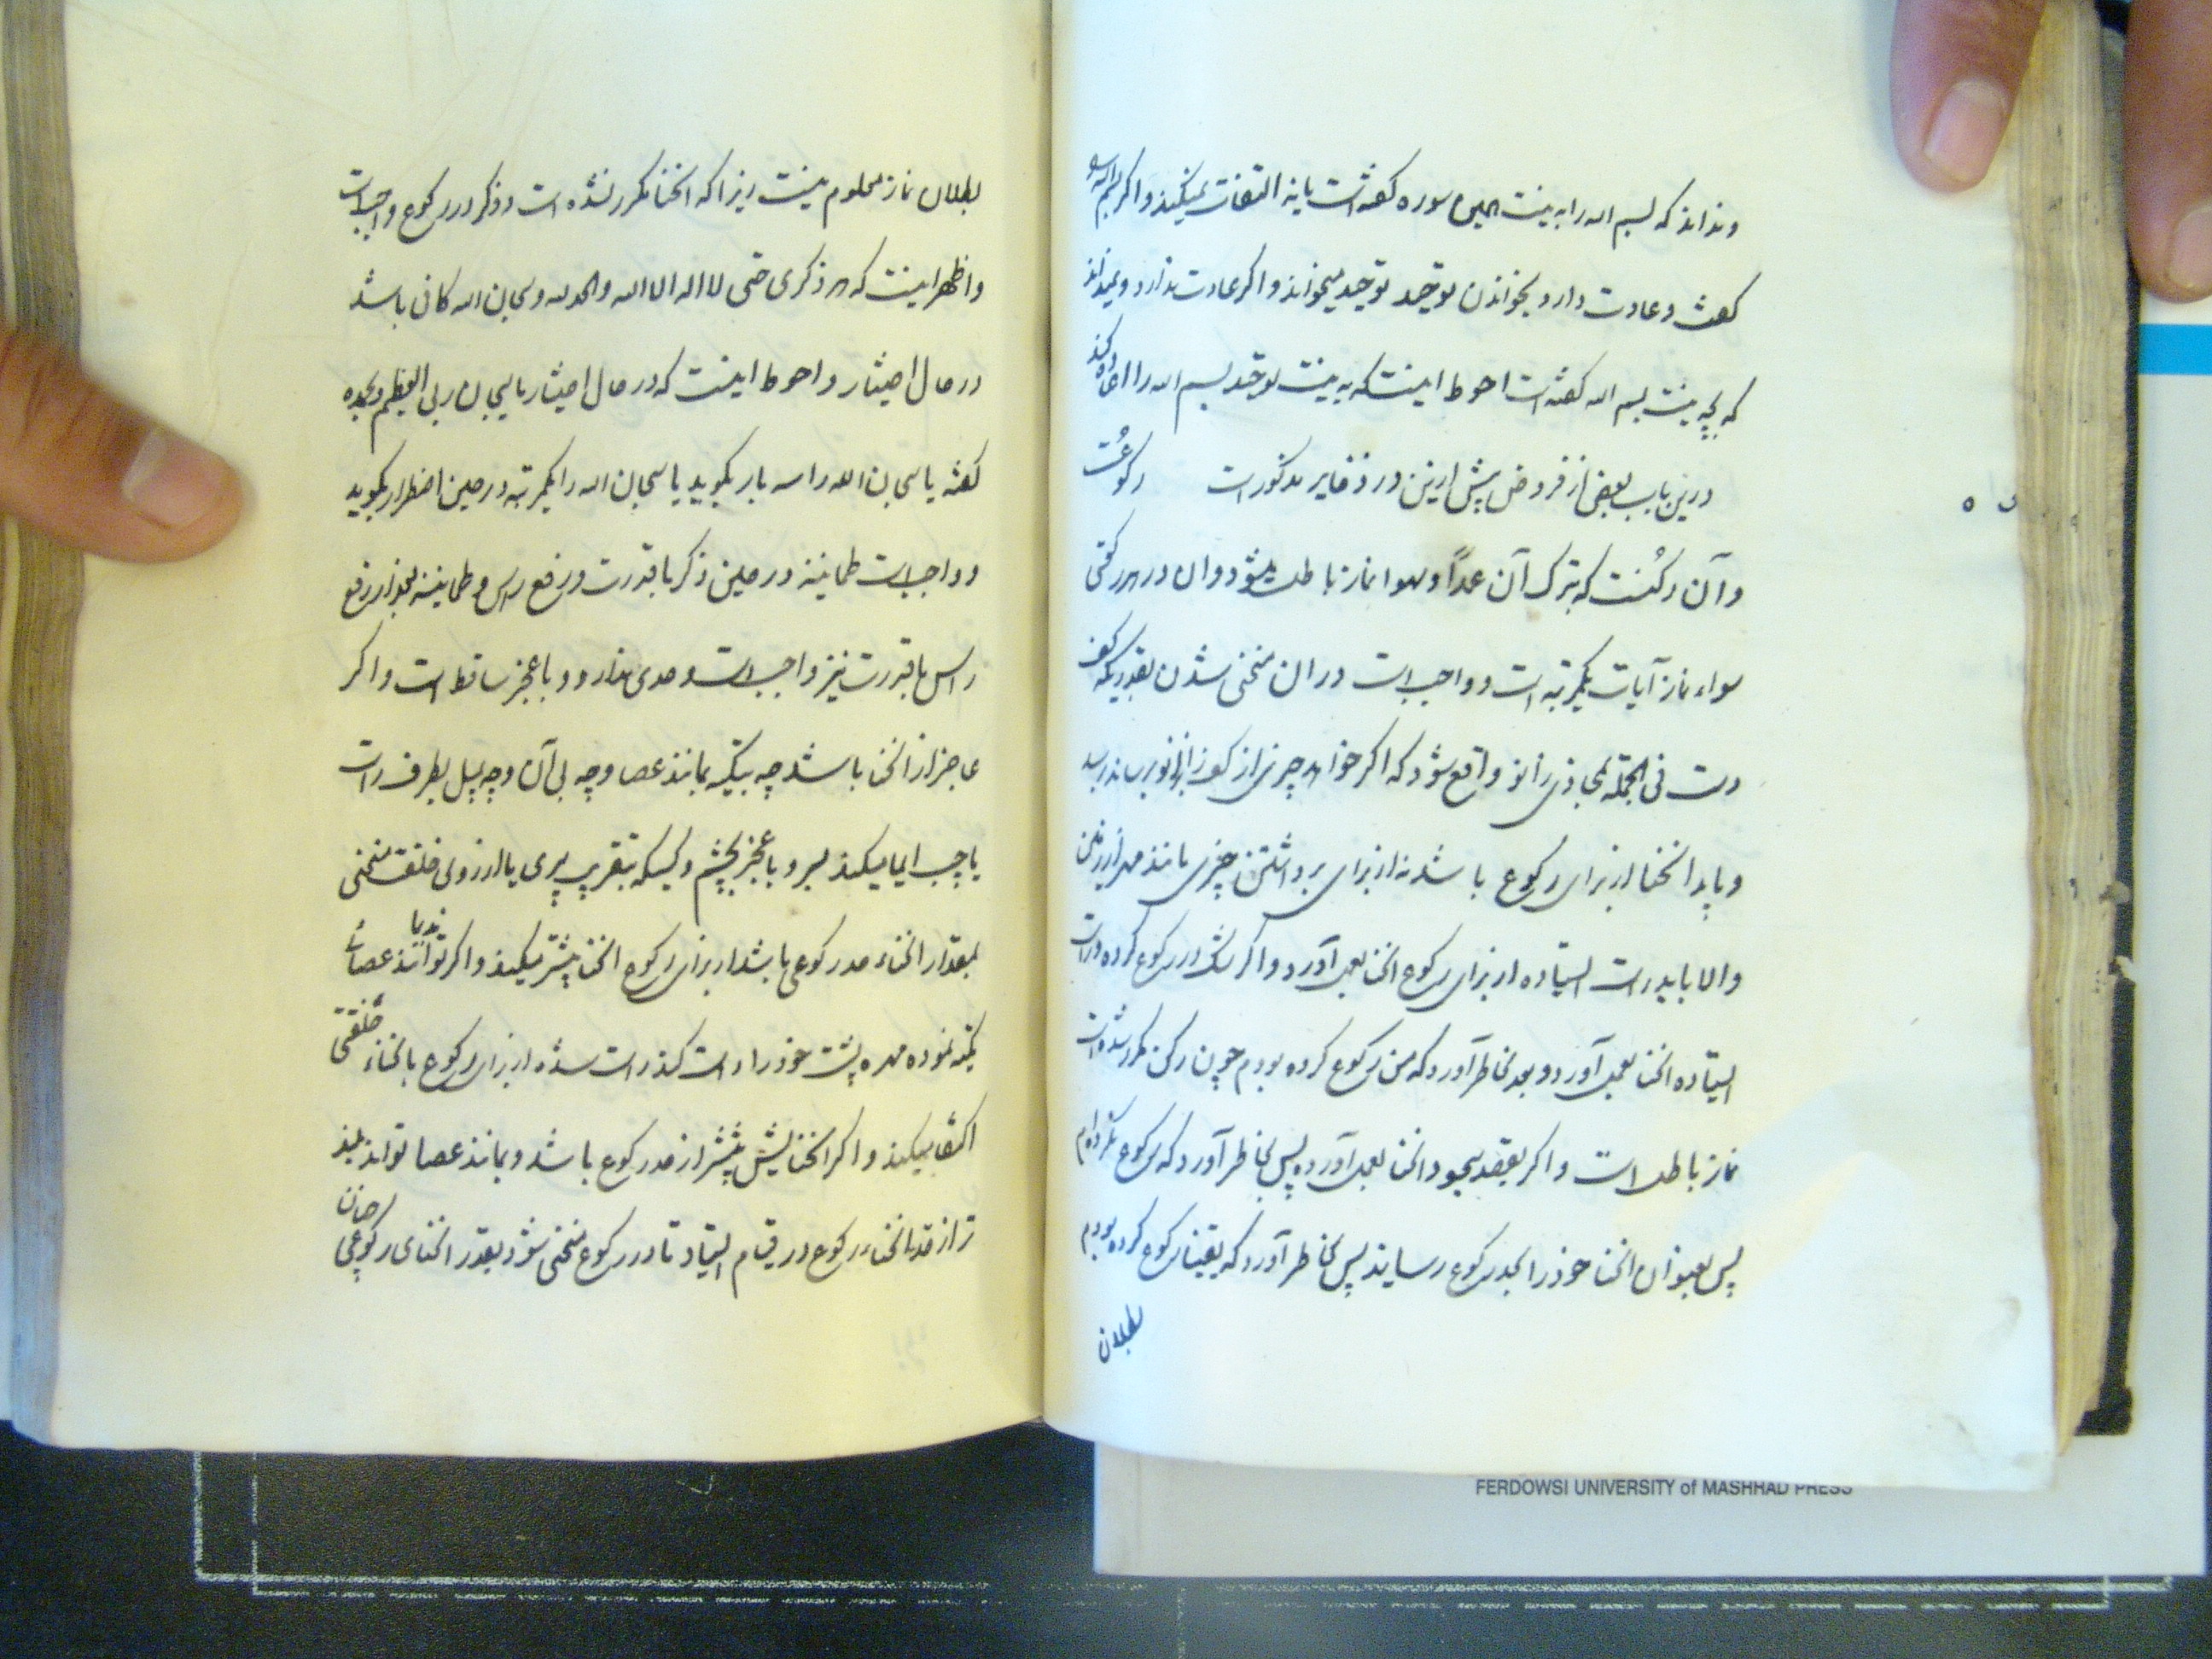 ونداند که بسم الله را به نیت همین سوره گفته است یا نه التفات نمیکند و اگر بسم الله
گفت و عادت دارد بخواندن توحید توحید میخواند و اگر عادت ندارد و نمیداند
که بچه نیت بسم الله گفته است احوط اینست که به نیت توحید بسم الله را اعاده کند
درین باب بعضی از فروض پیش ازین در ذخایر مذکور است رکوعست
و آن رکنست که بترک آن عمداً و سهوا نماز باطل میشود و ان در هر رکعتی
سواء نماز آیات یکمرتبه است و واجب است در ان منحنی شدن بقدریکه کف
دست فی الجمله محاذی زانو واقع شود که اگر خواهد چیزی از کف بزانو برساند برسد
و باید انحنا از برای رکوع باشد نه از برای برداشتن چیزی مانند مهر از زمین
والا باید راست ایستاده از برای رکوع انحنا بعمل آورد و اگر شک در رکوع کرده راست
ایستاده انحنا بعمل آورد و بعد بخاطر آورد که من رکوع کرده بودم چون رکن مکرر شده است
نماز باطل است و اگر بقصد سجود انحنا بعمل آورده پس بخاطر آورد که رکوع نکرده ام
پس بعنوان انحنا خود را بحد رکوع رسانید پس بخاطر آورد که یقینا رکوع کرده بودم
بطلان
بطلان نماز معلوم نیست زیرا که انحنا مکرر نشده است و ذکر در رکوع واجبست
و اظهر اینست که هر ذکری حتی لا اله الا الله والحمد لله و سبحان الله کافی باشد
در حال اختیار و احوط اینست که در حال اختیار یا سبحان ربی العظیم و بحمده
گفته یا سبحان الله را سه بار بگوید یا سبحان الله را یکمرتبه در حین اضطرار بگوید
و واجب است طمانینه در حین ذکر با قدرت و رفع راس و طمانینه بعد از رفع
راس با قدرت نیز واجب است و حدی ندارد و با عجز ساقط است و اگر
عاجز از انحنا باشد چه بتکیه بمانند عصا و چه بی آن و چه بمیل بطرف راست
یا چپ ایما میکند بسر و با عجز بچشم و کسیکه بتقریب پیری یا از روی خلقت منحنی
بمقدار انحناء حد رکوعی باشد از برای رکوع انحنا بیشتر میکند و اگر تواند بمانند عصائی
تکیه نموده مهره پشت خود را راست کند راست شده از برای رکوع بانحناء خلقتی
اکتفا میکند و اگر انحنایش بیشتر از حد رکوع باشد و بمانند عصا تواند بلند
تر از قد انحناء رکوع در قیام ایستاد تا در رکوع منحنی شود بقدر انحنای رکوعی چنان
FERDOWSI UNIVERSITY of MASHHAD PRESS